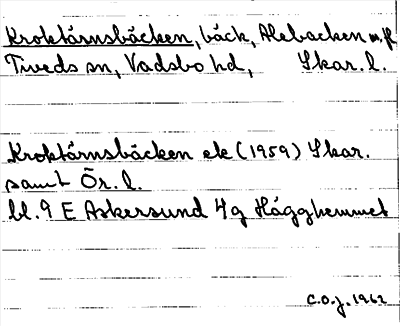 Kroktärnsbäcken, bäck, Alebacken m.fl.
Tiveds sn, Vadsbo hd, Skar. l.
Kroktärnsbäcken ek (1959) Skar.
samt Ör. l.
bl. 9 E Askersund 4g Hägghemmet
C.O.J. 1962